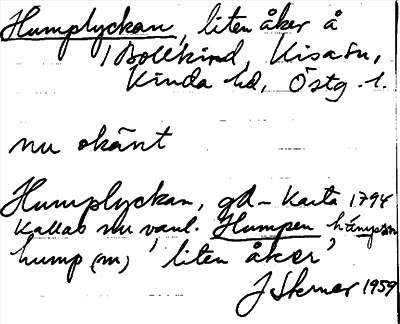 Humplyckan, liten åker å
Bollkind, Kisa sn,
Kinda hd, Östg. l.
nu okänt
Humplyckan, gd - Karta 1794
Kallas nu vanl. Humpen
hump (m) 'liten åker'
J Skruer 1959